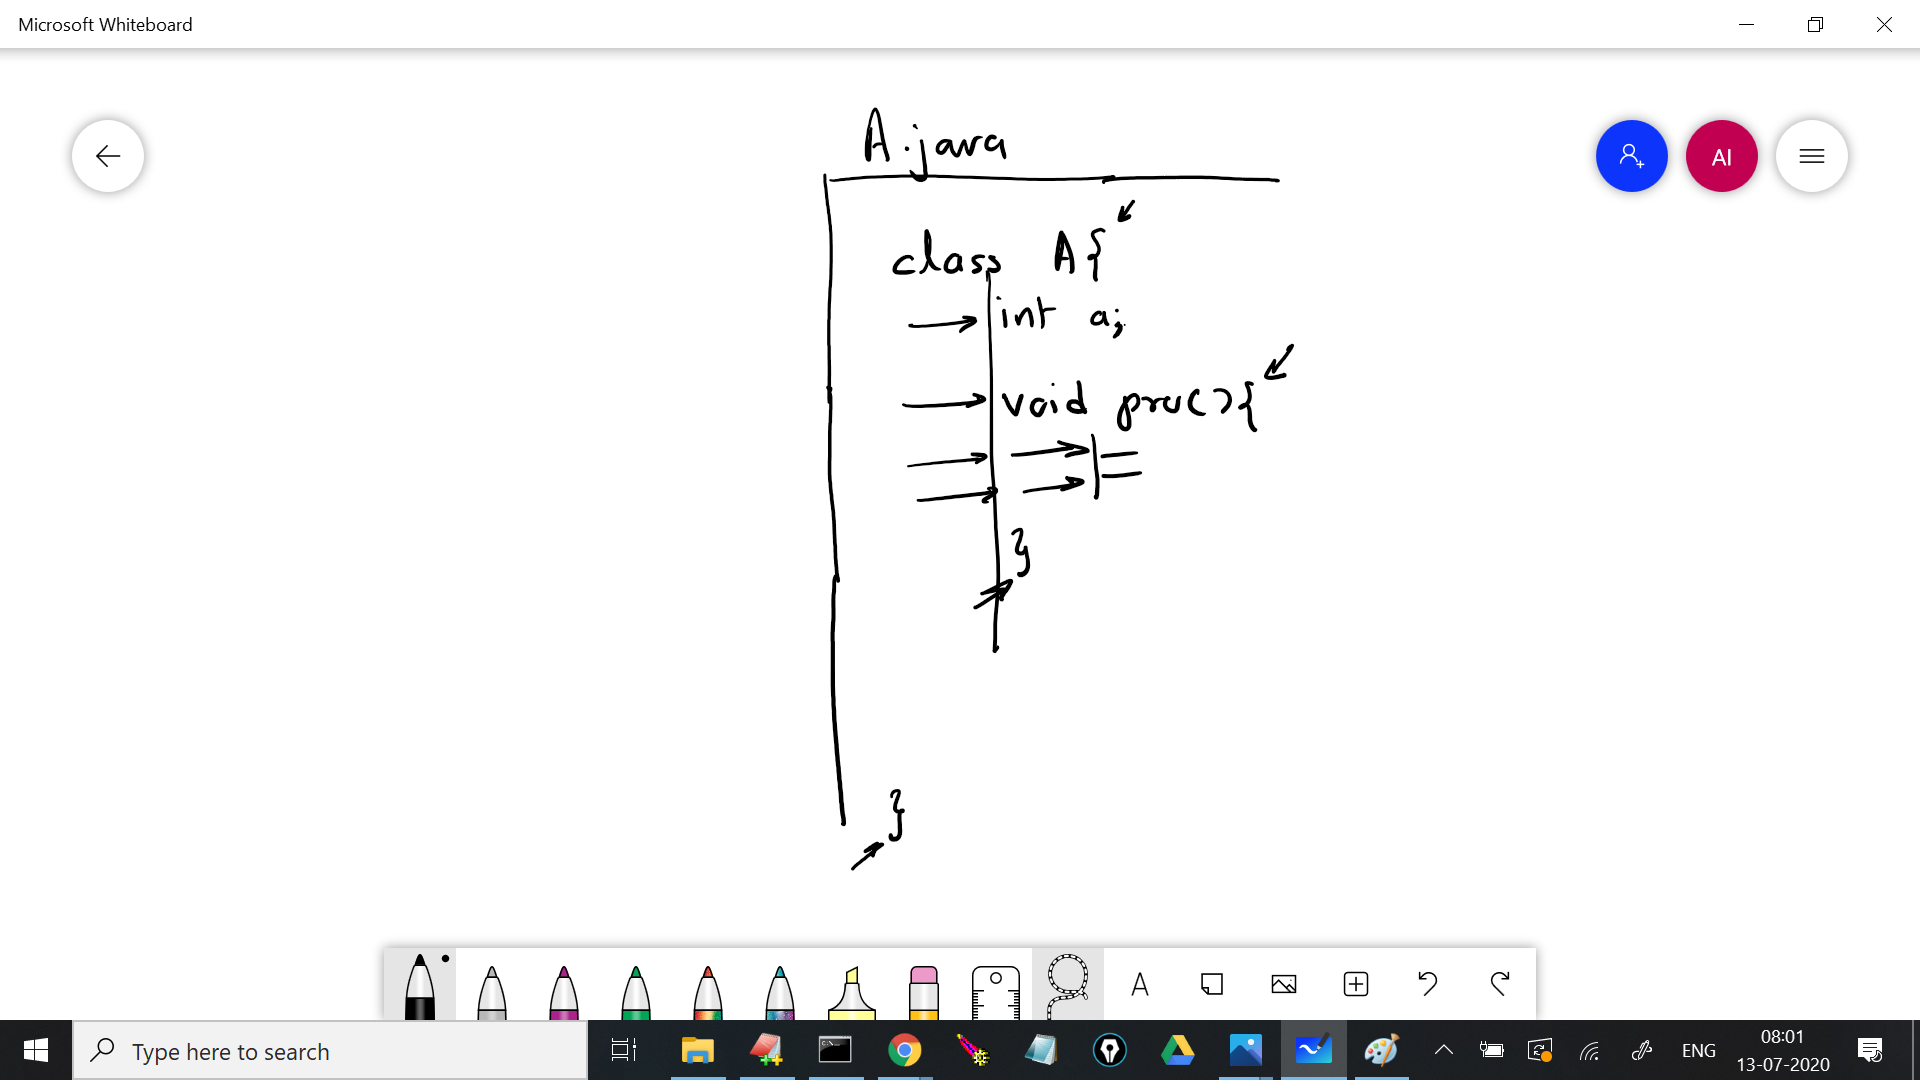 Microsoft Whiteboard
AI
A.java
class A{
int a;
void proc(){
}
}
A
Type here to search
ENG
08:01
13-07-2020